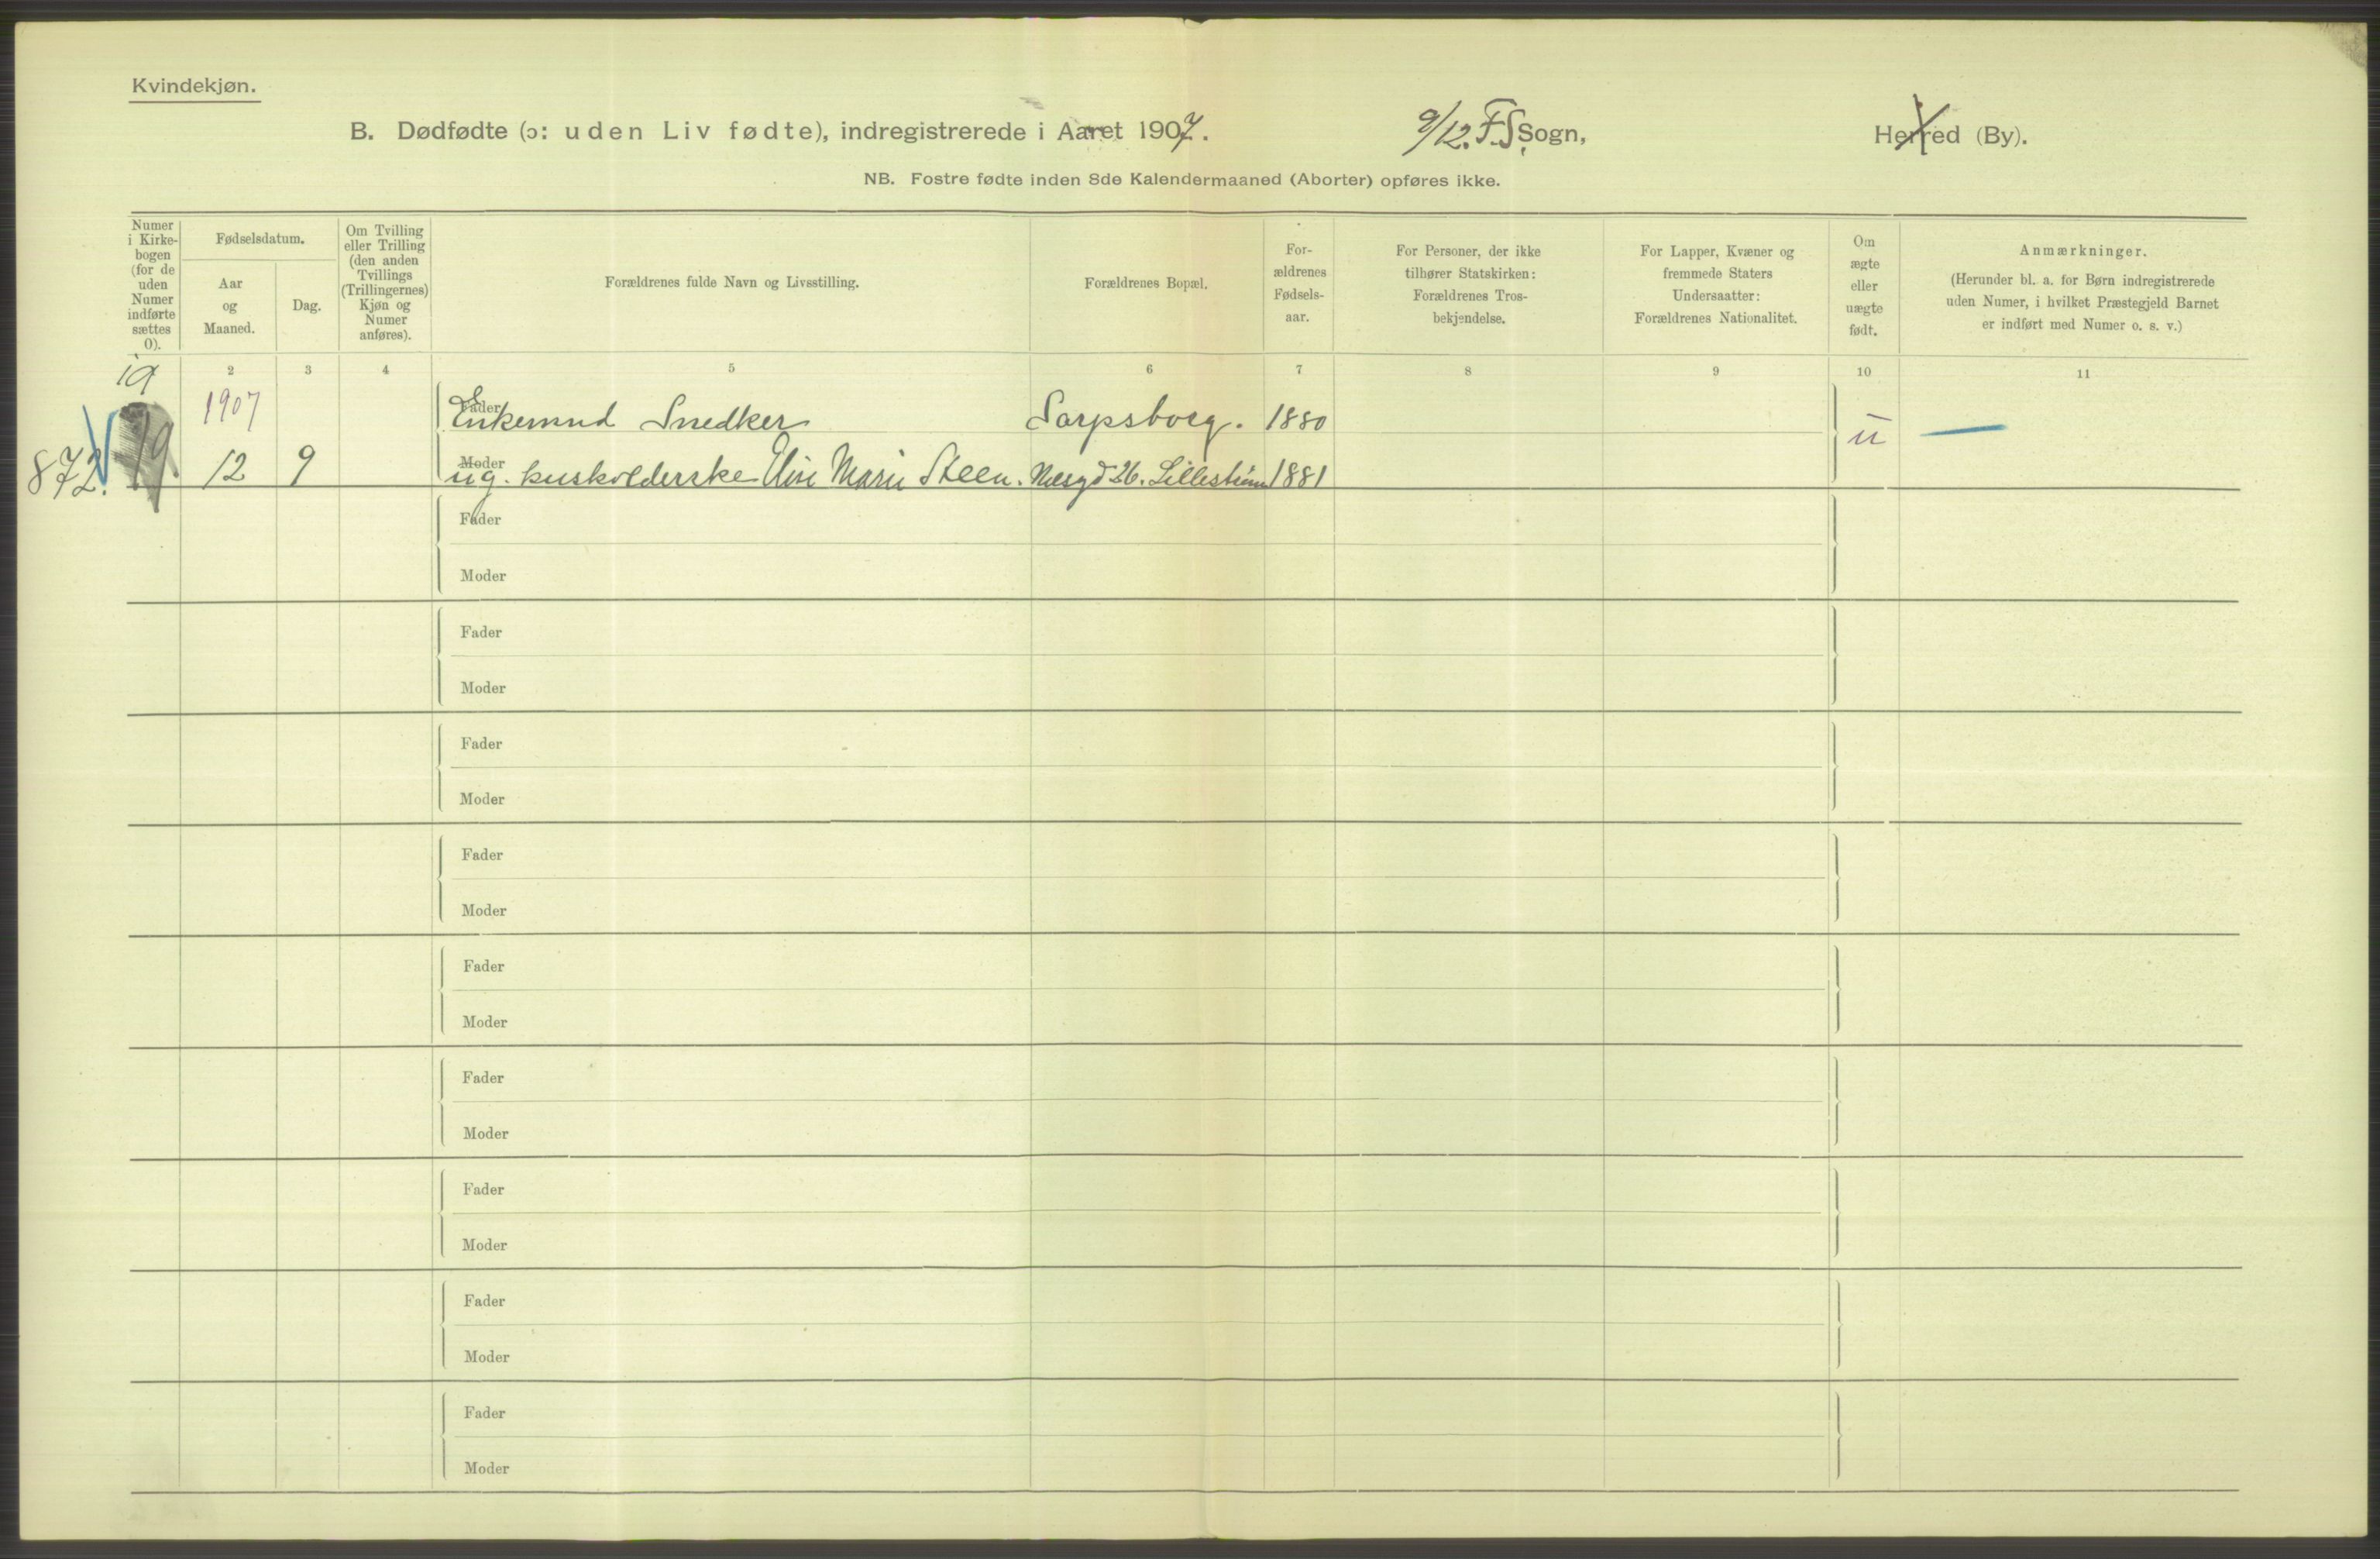 Kvindekjøn.
B. Dødfødte (ɔ: uden Liv fødte), indregistrerede i Aaret 1907. 9/12. F.S. Sogn, Herred (By).
NB. Fostre fødte inden 8de Kalendermaaned (Aborter) opføres ikke.
Numer
i Kirke-
bogen
(for de
uden
Numer
indførte
sættes
0).
Fødselsdatum.
Aar
og
Maaned.
Dag.
Om Tvilling
eller Trilling
(den anden
Tvillings
(Trillingernes)
Kjøn og
Numer
anføres).
Forældrenes fulde Navn og Livsstilling.
Forældrenes Bopæl.
For-
ældrenes
Fødsels-
aar.
For Personer, der ikke
tilhører Statskirken:
Forældrenes Tros-
bekjendelse.
For Lapper, Kvæner og
fremmede Staters
Undersaatter:
Forældrenes Nationalitet.
Om
ægte
eller
uægte
født.
Anmærkninger.
(Herunder bl. a. for Børn indregistrerede
uden Numer, i hvilket Præstegjeld Barnet
er indført med Numer o. s. v.)
2 3 4 5 6 7 8 9 10 11
19
1907 Fader Enkemnd Snedker Sarpsborg. 1880
u
872. 19. 12 9 Moder ug. husholderske Elise Marie Steen. 26. Lillestrøm 1881
Fader
Moder
Fader
Moder
Fader
Moder
Fader
Moder
Fader
Moder
Fader
Moder
Fader
Moder
Fader
Moder
Fader
Moder